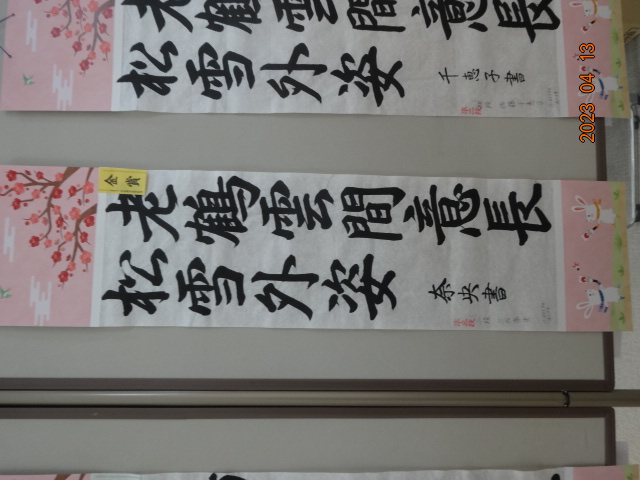 老鶴雲間意長
松雪外姿
千恵子書
金賞
老鶴雲間意長
松雪外姿
奈央書
2023 04 13